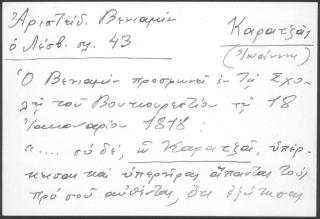 Ἀριστείδ. Βενιαμὶν
ὁ Λέσβ. σελ. 43
Καρατζᾶς
(Ἰωάννης)
Ὁ Βενιαμὶν προσφωνεῖ ἐν τῇ Σχο-
λῇ τοῦ Βουκουρεστίου τῇ 18
Ἰανουαρίου 1818:
"... σὺ δέ, ὦ Καρατζᾶ, ὑπέρ-
κησας καὶ ὑπερῆρας ἅπαντας τοὺς
πρὸ σοῦ αὐθέντας, ὅτι ἐζήτησας